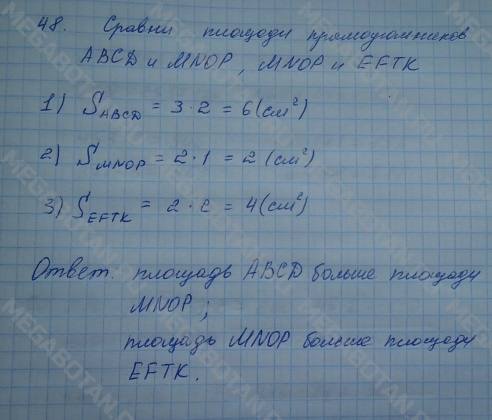 48. Сравни площади прямоугольников
ABCD и MNOP, MNOP и EFTK
1) S ABCD = 3 · 2 = 6 (см²)
2) S MNOP = 2 · 1 = 2 (см²)
3) S EFTK = 2 · 2 = 4 (см²)
Ответ. площадь ABCD больше площади
MNOP;
площадь MNOP больше площади
EFTK.